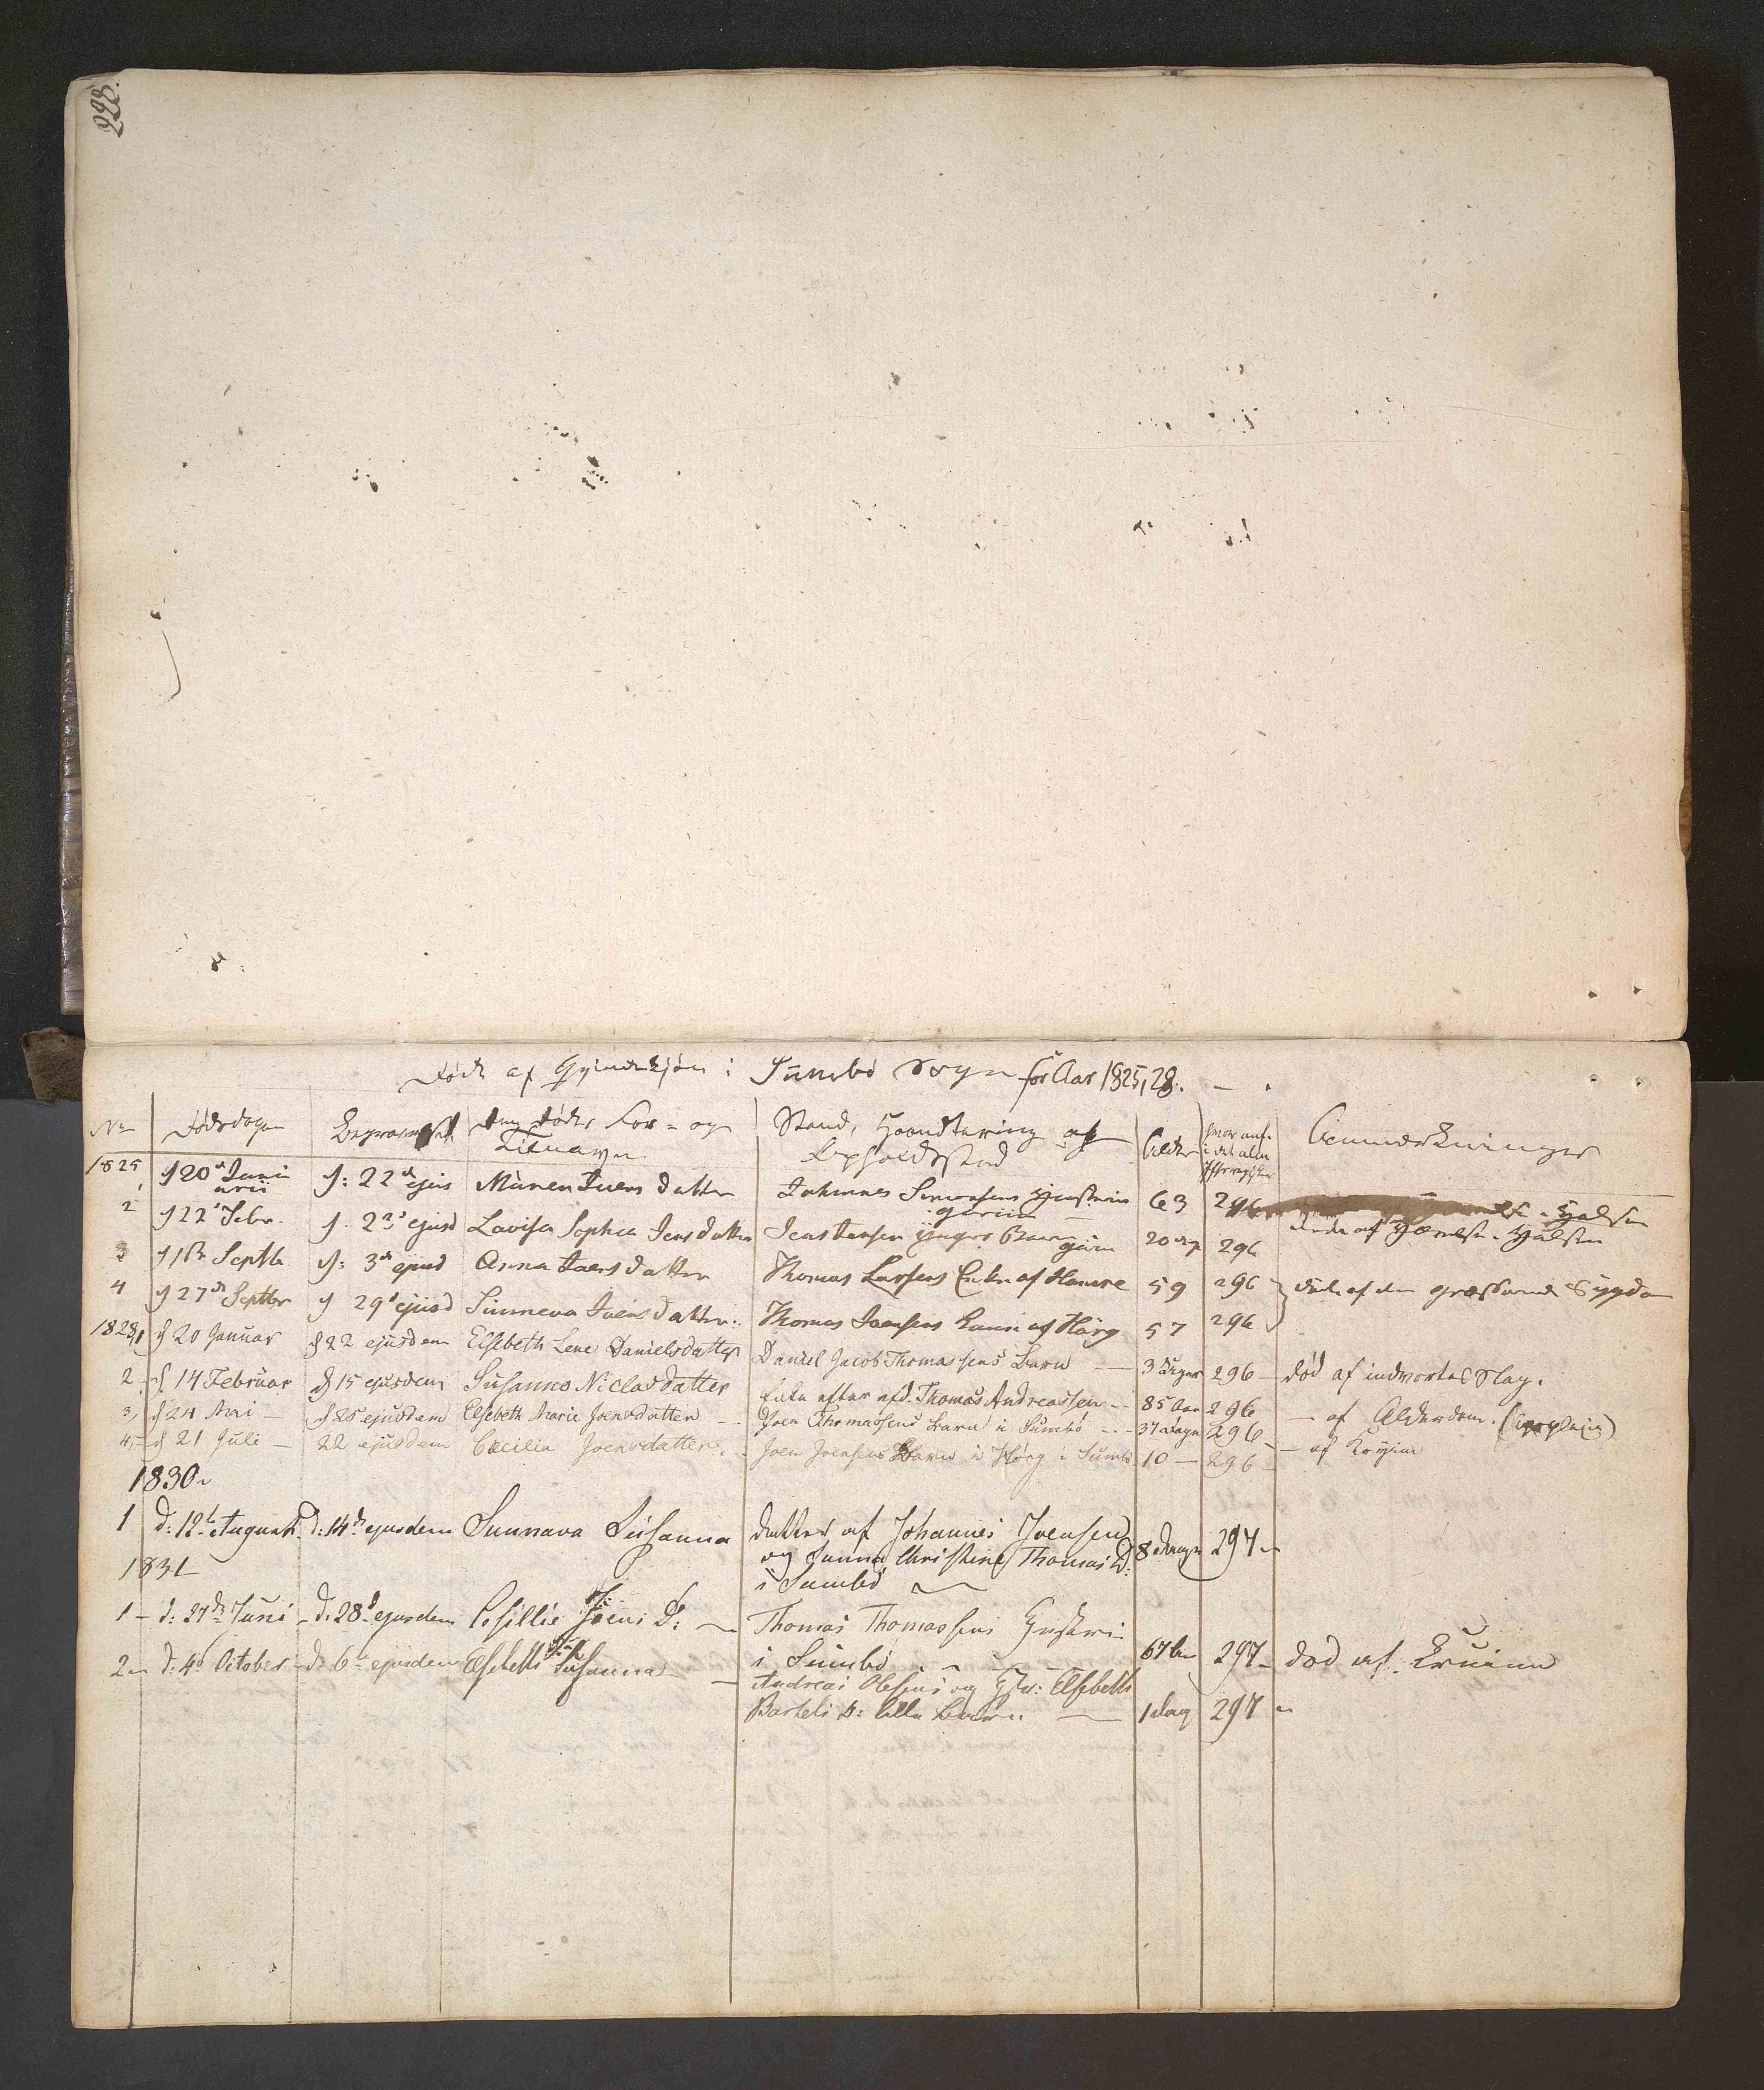 228.
Døde af Qvindekjøn i Sumbø Sogn for Aar 1825, 28.
No Dødsdagen Begravelsesd. Den Dødes For- og Tilnavn Stand, Haandtering og Opholdssted Alder hvor anf. i det alm. Anmærkninger
1825
1 d 20de Januarii d: 22de ejus Maren Iuens datter Johannes Simonsens 63 296
2 d 22 Febr. d. 23d ejusd Lovisa Sophia Jens datter Jens Jensen 20 296 døde af i Halsen
3 d 1ste Septbr d: 3de ejusd Anna Joens datter Thomas Larsens Enke af Hamre 59 296 døde af den grasserende Sygdom
4 d 27de Septbr d 29d ejusd Sunneva Iuens datter Thomas Joensens Kone af Hørg 57 296
1828,1 d 20 Januar d 22 ejusdem Elsebeth Lene Danielsdatter Daniel Jacob Thomassens Barn 3 Dager 296 død af indvortes Slag.
2 d. 14 Februar d 15 ejusdem Susanne Niclasdatter Enke efter afd. Thomas Andreassen 85 Aar 296 af Alderdom.
3, d 24 Mai d 25 ejusdem Elsebeth Marie Joensdatter Joen Thomassens Barn i Sumbø 37 Dage 296 af Krujm
4, d 21 Juli 22 ejusdem Cæcilia Joensdatter Joen Joensens Barn i Hørg i Sumbø 10 296
1830
1 d: 12te August d: 14de ejusdem Sunnava Susanna Datter af Johannes Joensen 8 Dage 297
og Sunna Christine Thomas D:
i Sumbø
1831
1 d: 27de Juni d. 28d ejusdem Cesillie Joens D: Thomas Thomassens Hustru
i Sumbø 67 297 død af Kruim
2 d: 4de October d 6te ejusdem Elsebeth Susanna Andreas Olesens og Elsebeth
Bartels D: Barn 1 dag 297